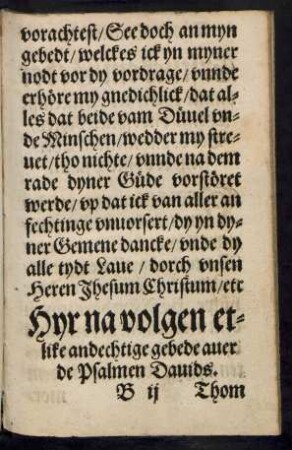 vorachtest/ See doch an myn
gebedt/ welckes ick yn myner
nodt vor dy vordrage/ vnnde
erhöre my gnedichlick/ dat al-
les dat beide vam Düuel vn-
de Minschen/ wedder my stre-
uet/ tho nichte/ vnnde na dem
rade dyner Güde vorstöret
werde/ vp dat ick van aller an
fechtinge vnuorsert/ dy yn dy-
ner Gemene dancke/ vnde dy
alle tydt Laue/ dorch vnsen
Heren Jhesum Christum/ etc
Hyr na volgen et-
like andechtige gebede auer
de Psalmen Dauids.
B ij Thom